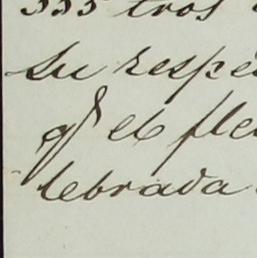 335 tros
su respe
qº el fle
lebrada